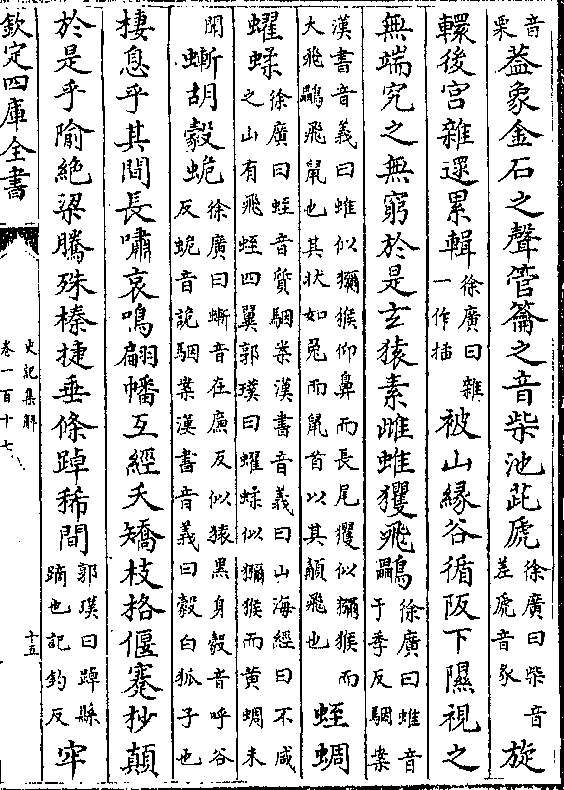 音
栗
蓋象金石之聲管籥之音柴池茈虒
徐廣曰柴音
差虒音豕
旋
轘後宮雜遝累輯
徐廣曰雜
一作插
被山緣谷循阪下隰視之
無端究之無窮於是玄猿素雌蜼玃飛鸓
徐廣曰蜼音
于季反駰案
漢書音義曰蜼似獼猴仰鼻而長尾玃似獼猴而
大飛鸓飛鼠也其狀如兔而鼠首以其䫇飛也
蛭蜩
蠷蝚
徐廣曰蛭音質駰案漢書音義曰山海經曰不咸
之山有飛蛭四翼郭璞曰蠷蝚似獼猴而黃蜩未
聞
螹胡豰蛫
徐廣曰螹音在廉反似猿黑身豰音呼谷
反蛫音詭駰案漢書音義曰豰白狐子也
棲息乎其間長嘯哀鳴翩幡互經夭矯枝格偃蹇杪顛
於是乎隃絕梁騰殊榛捷垂條踔稀間
郭璞曰踔縣
蹢也託釣反
牢
欽定四庫全書
史記集解
卷一百十七
十五